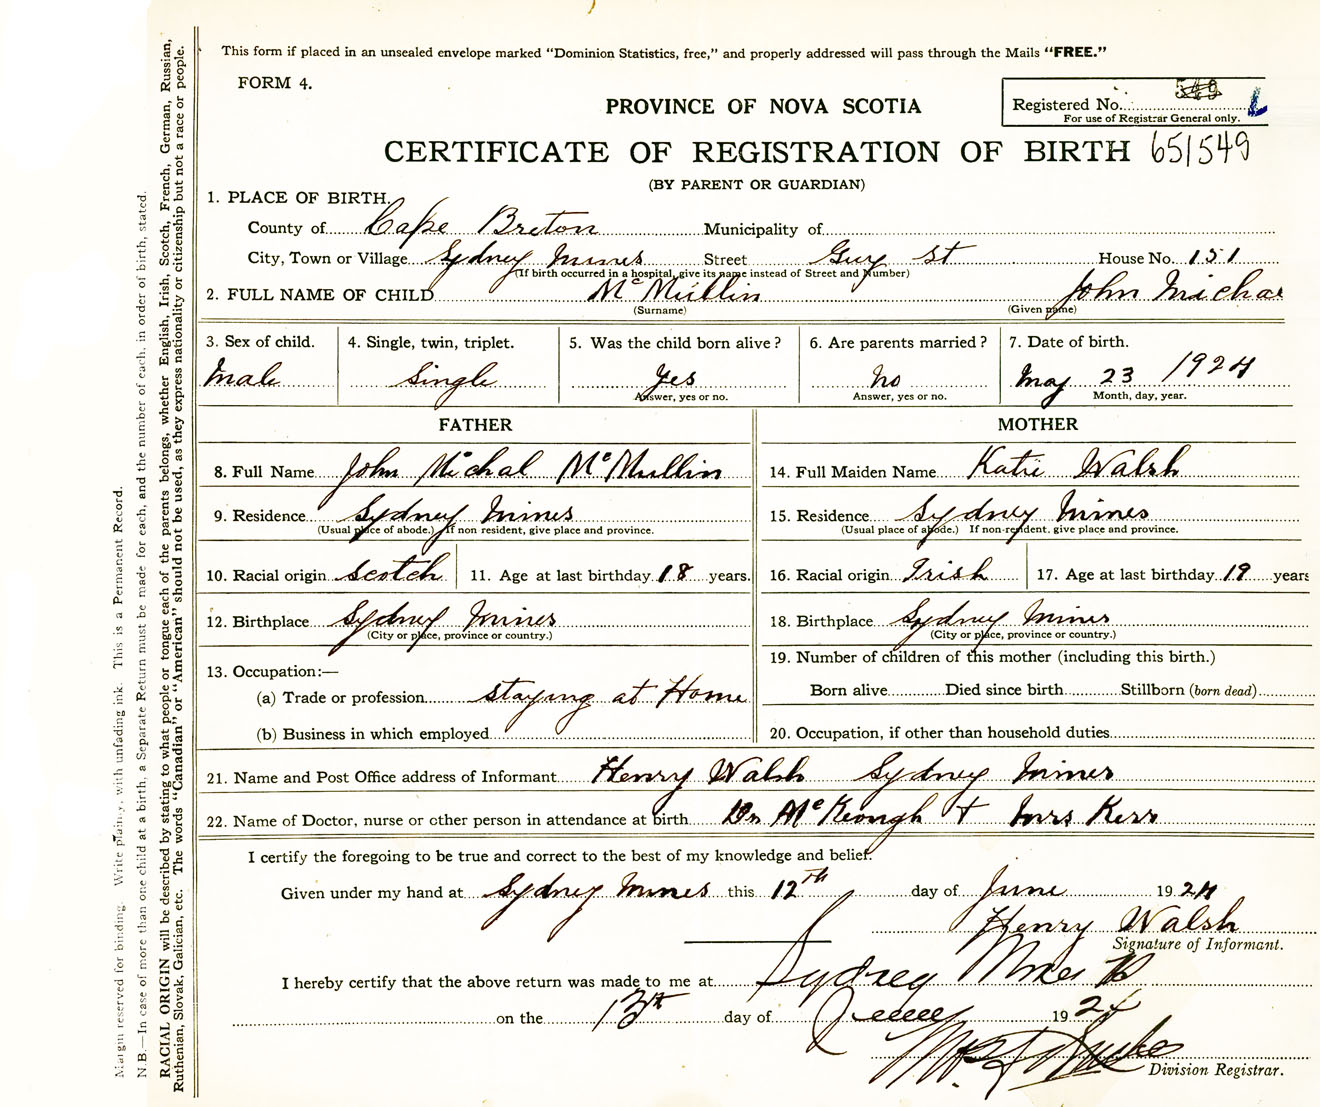 This form if placed in an unsealed envelope marked "Dominion Statistics, free," and properly addressed will pass through the Mails "FREE."
FORM 4.
PROVINCE OF NOVA SCOTIA
Registered No. 549 L
For use of Registrar General only.
CERTIFICATE OF REGISTRATION OF BIRTH 651549
(BY PARENT OR GUARDIAN)
1. PLACE OF BIRTH.
County of Cape Breton Municipality of
City, Town or Village Sydney Mines Street Guy St House No. 151
(If birth occurred in a hospital, give its name instead of Street and Number)
2. FULL NAME OF CHILD McMullin John Michae
(Surname) (Given name)
3. Sex of child. 4. Single, twin, triplet. 5. Was the child born alive? 6. Are parents married? 7. Date of birth.
Male Single Yes No May 23 1924
Answer, yes or no. Answer, yes or no. Month, day, year.
FATHER MOTHER
8. Full Name John Michal McMullin 14. Full Maiden Name Katie Walsh
9. Residence Sydney Mines 15. Residence Sydney Mines
(Usual place of abode.) If non resident, give place and province. (Usual place of abode.) If non-resident, give place and province.
10. Racial origin Scotch 11. Age at last birthday 18 years. 16. Racial origin Irish 17. Age at last birthday 19 years
12. Birthplace Sydney Mines 18. Birthplace Sydney Mines
(City or place, province or country.) (City or place, province or country.)
13. Occupation:— 19. Number of children of this mother (including this birth.)
(a) Trade or profession staying at Home Born alive Died since birth Stillborn (born dead)
(b) Business in which employed 20. Occupation, if other than household duties
21. Name and Post Office address of Informant Henry Walsh Sydney Mines
22. Name of Doctor, nurse or other person in attendance at birth Dr McKeough + Mrs Kerr
I certify the foregoing to be true and correct to the best of my knowledge and belief.
Given under my hand at Sydney Mines this 12th day of June 1924
Henry Walsh
Signature of Informant.
I hereby certify that the above return was made to me at Sydney Mines
on the 13th day of June 1924
Division Registrar.
Margin reserved for binding. Write plainly, with unfading ink. This is a Permanent Record.
N.B.—In case of more than one child at a birth, a Separate Return must be made for each, and the number of each, in order of birth, stated.
RACIAL ORIGIN will be described by stating to what people or tongue each of the parents belongs, whether English, Irish, Scotch, French, German, Russian,
Ruthenian, Slovak, Galician, etc. The words "Canadian" or "American" should not be used, as they express nationality or citizenship but not a race or people.